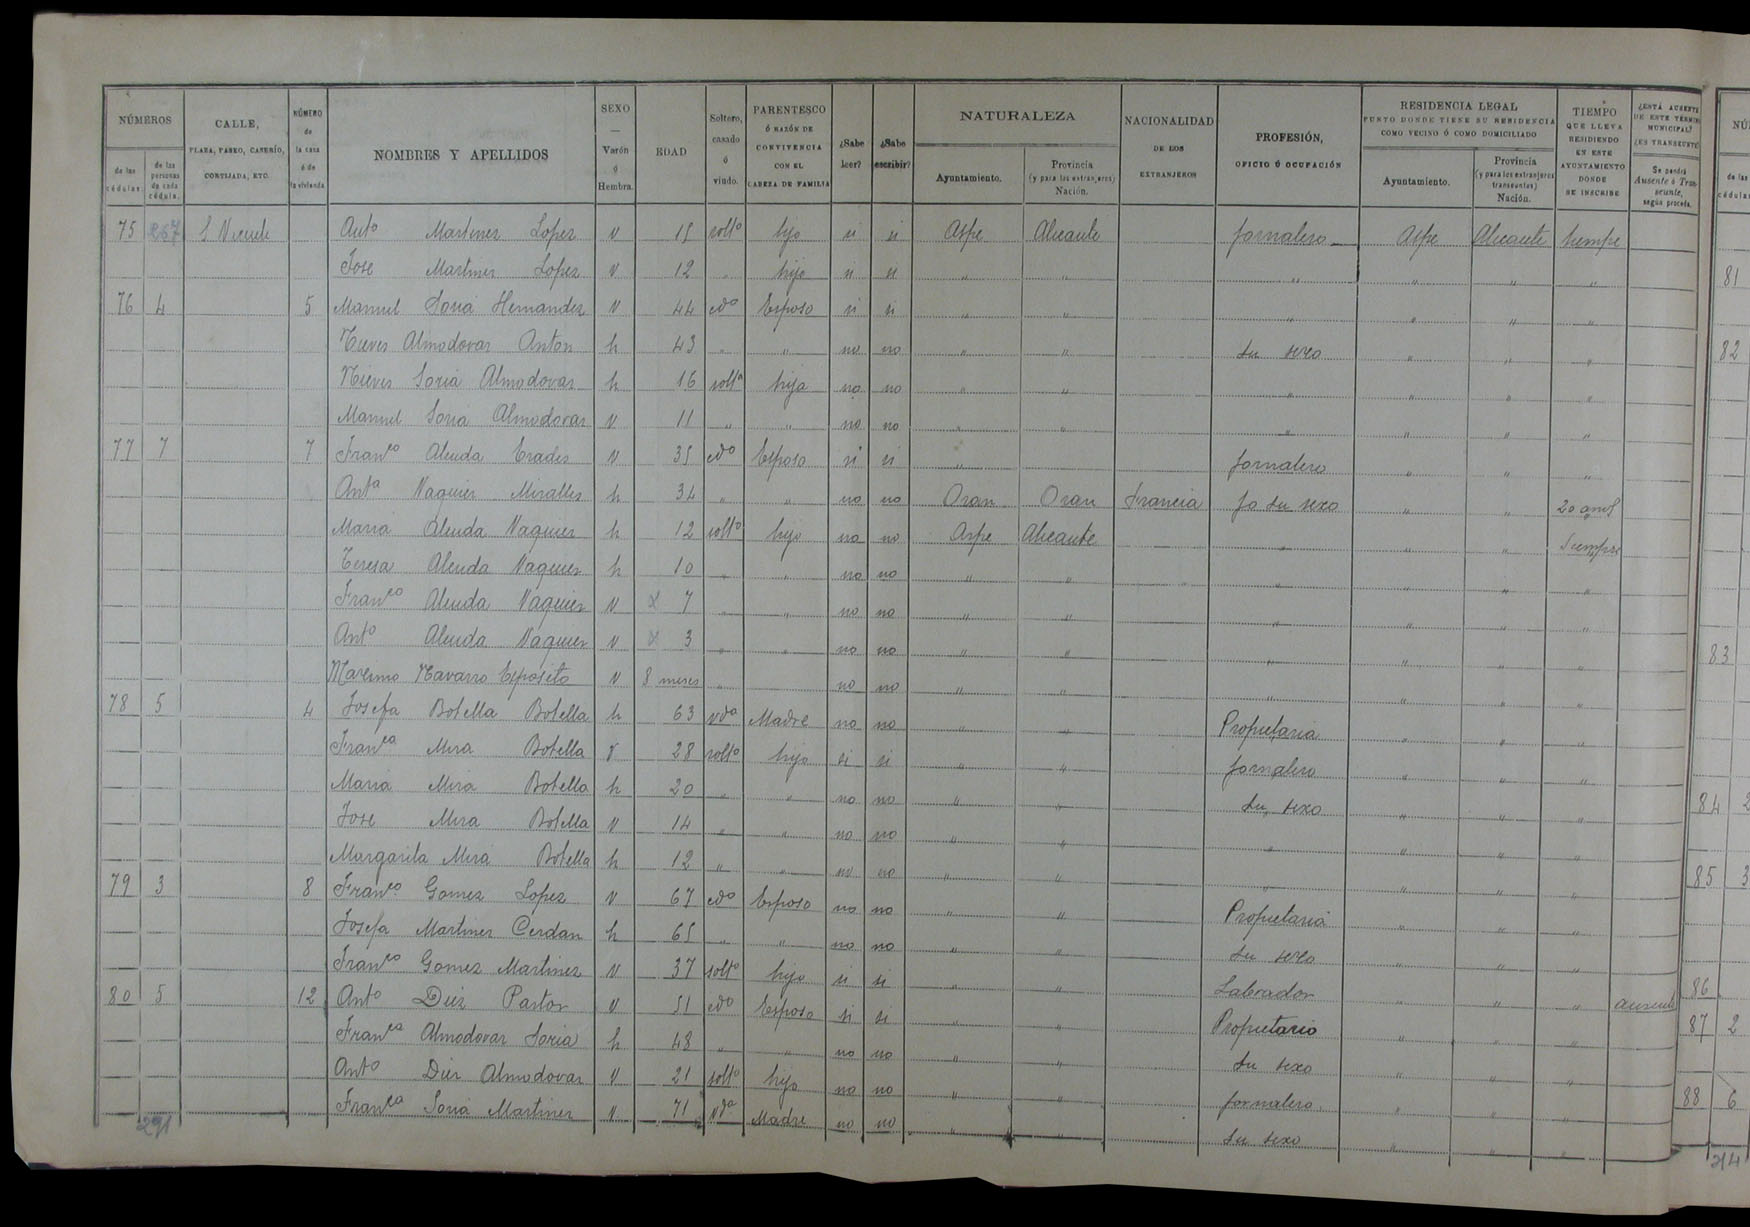 NÚMEROS
de las cédulas.
de las personas de cada cédula.
CALLE, PLAZA, PASEO, CASERÍO, CORTIJADA, ETC.
NÚMERO de la casa ó de la vivienda
NOMBRES Y APELLIDOS
SEXO — Varón ó Hembra.
EDAD
Soltero, casado ó viudo.
PARENTESCO Ó RAZÓN DE CONVIVENCIA CON EL CABEZA DE FAMILIA
¿Sabe leer?
¿Sabe escribir?
NATURALEZA
Ayuntamiento.
Provincia (y para los extranjeros) Nación.
NACIONALIDAD DE LOS EXTRANJEROS
PROFESIÓN, OFICIO Ó OCUPACIÓN
RESIDENCIA LEGAL
PUNTO DONDE TIENE SU RESIDENCIA COMO VECINO Ó COMO DOMICILIADO
Ayuntamiento.
Provincia (y para los extranjeros transeuntes) Nación.
TIEMPO QUE LLEVA RESIDIENDO EN ESTE AYUNTAMIENTO DONDE SE INSCRIBE
¿ESTÁ AUSENTE DE ESTE TÉRMINO MUNICIPAL? ¿ES TRANSEUNTE?
Se pondrá Ausente ó Transeunte, según proceda.
75 267 S Vicente Antº Martinez Lopez v 15 soltº hijo si si Aspe Alicante Jornalero Aspe Alicante siempre
Jose Martinez Lopez v 12 " hijo si si " " " " " "
76 4 5 Manuel Soria Hernandez v 44 cdº Esposo si si " " " " " "
Nieves Almodovar Anton h 43 " " no no " " Su sexo " " "
Nieves Soria Almodovar h 16 soltª hija no no " " " " " "
Manuel Soria Almodovar v 11 " " no no " " " " " "
77 7 7 Francº Alenda Erades v 35 cdº Esposo si si " Jornalero " " "
Antª Vaquier Miralles h 34 " " no no Oran Oran Francia Jo Su sexo " " 20 años
Maria Alenda Vaquier h 12 soltº hijo no no Aspe Alicante " " " Siempre
Teresa Alenda Vaquier h 10 " " no no " " " " " " "
Francº Alenda Vaquier v 7 " " no no " " " " " "
Antº Alenda Vaquier v 3 " " no no " " " " " "
Maximo Navarro Esposito v 8 meses " no no " " " " " "
78 5 4 Josefa Botella Botella h 63 vdª Madre no no " " Propietaria " " "
Francª Mira Botella v 28 soltº hijo si si " " Jornalero " " "
Maria Mira Botella h 20 " " no no " " Su sexo " " "
Jose Mira Botella v 14 " " no no " " " " " "
Margarita Mira Botella h 12 " " no no " " " " " "
79 3 8 Francº Gomez Lopez v 67 cdº Esposo no no " " Propietaria " " "
Josefa Martinez Cerdan h 65 " " no no " " Su sexo " " "
Francº Gomez Martinez v 37 soltº hijo si si " " Labrador " " " ausente
80 5 12 Antº Diez Pastor v 51 cdº Esposo si si " " Propietario " " "
Francª Almodovar Soria h 48 " " no no " " Su sexo " " "
Antº Diez Almodovar v 21 soltº hijo no no " " Jornalero " " "
Francª Soria Martinez v 71 vdª Madre no no " " Su sexo " " "
291
de las cédulas
81
82
83
84 2
85 3
86
87 2
88 6
214